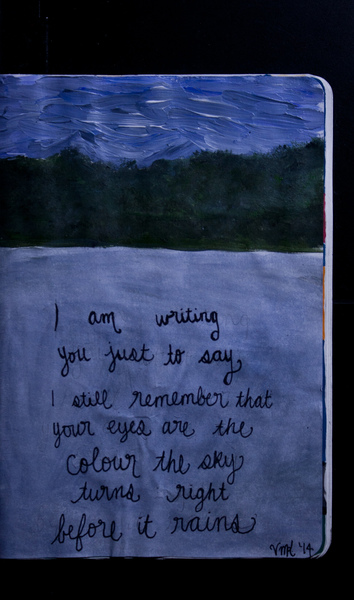 I am writing
you just to say,
I still remember that
your eyes are the
colour the sky
turns right
before it rains
VML '14